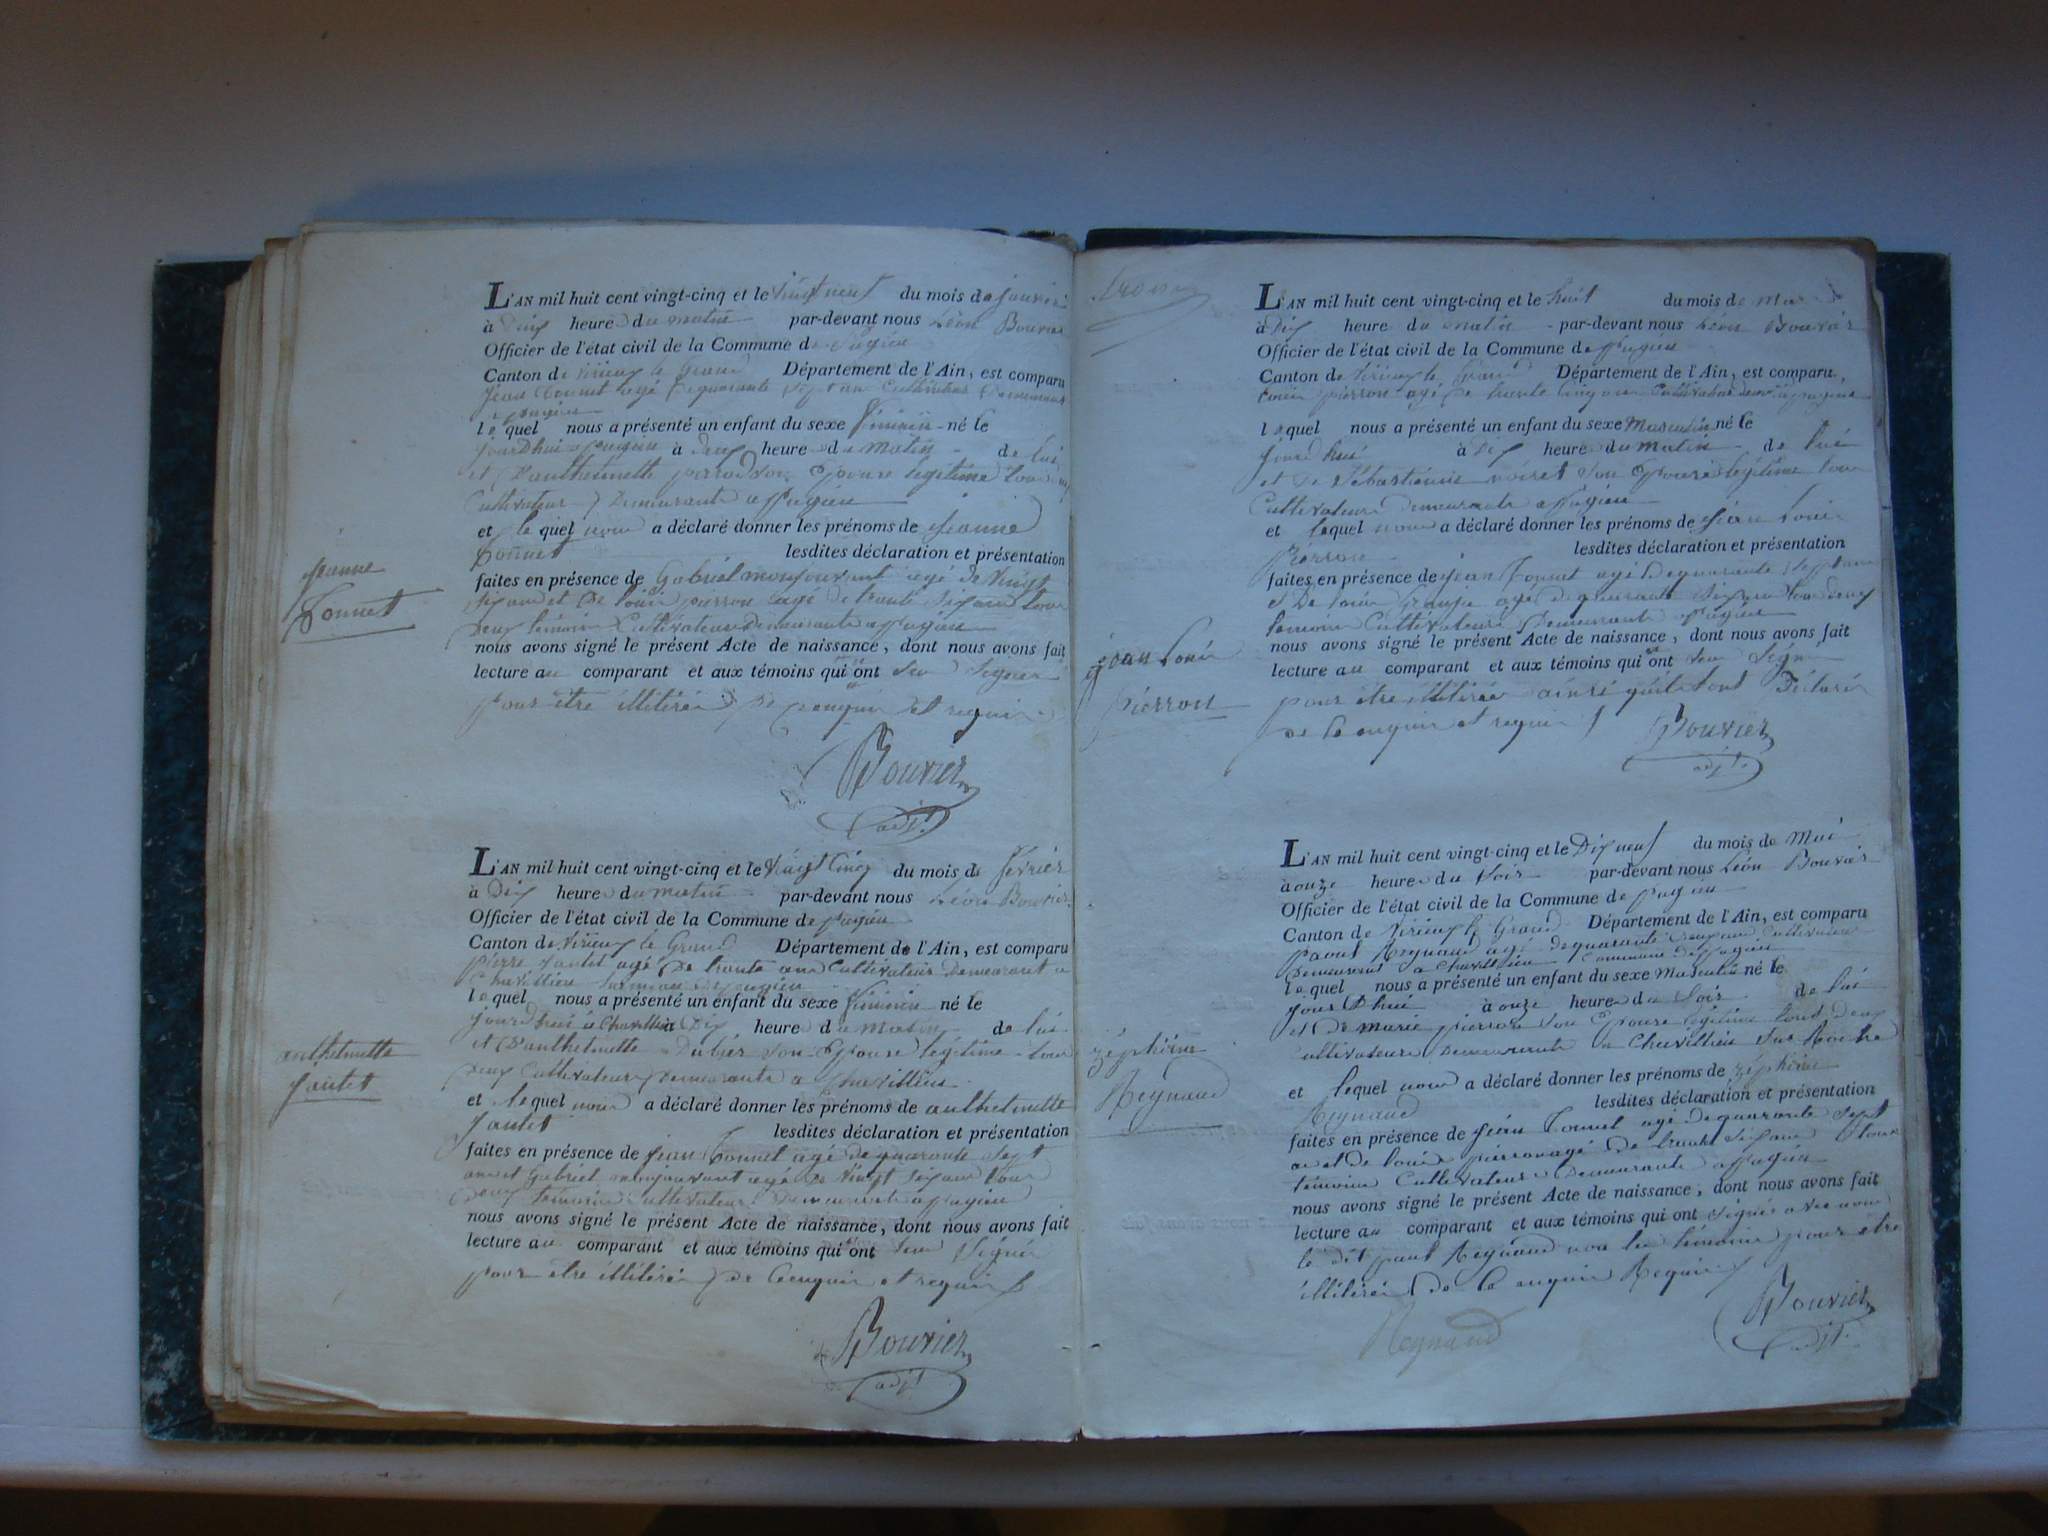 L'AN mil huit cent vingt-cinq et le vingt neuf du mois de janvier
à heure du matin par-devant nous Léon Bouvier
Officier de l'état civil de la Commune de pugieu
Canton de virieux le Grand Département de l'Ain, est comparu
jean Tonnet agé de quarante sept ans Cultivateur Demeurant
a pugieu
lequel nous a présenté un enfant du sexe féminin né le
jourDhui a pugieu à heure du matin de lui
et D'anthelmette son Epouse legitime tous
Cultivateur Demeurants a pugieu
et lequel nous a déclaré donner les prénoms de jeanne
Tonnet lesdites déclaration et présentation
faites en présence de Gabriel monjouvant agé de vingt
six ans et De louis pierron agé de trante six ans tous
Deux temoins Cultivateurs Demeurants a pugieu
nous avons signé le présent Acte de naissance, dont nous avons fait
lecture au comparant et aux témoins qui n'ont seu Signer
pour être illitéré De ce enquis et requis
Bouvier
adjt.
jeanne
Tonnet
L'AN mil huit cent vingt-cinq et le vingt Cinq du mois de février
à Dix heure du matin par-devant nous Léon Bouvier
Officier de l'état civil de la Commune de pugieu
Canton de virieux le Grand Département de l'Ain, est comparu
pierre jantet agé De trante ans Cultivateur Demeurant a
Chavillieu Commune de pugieu
lequel nous a présenté un enfant du sexe féminin né le
jourdhui à Chavillieu à Dix heure du Matin de lui
et D'anthelmette Dubier son Epouse legitime tous
Deux Cultivateurs Demeurants a Chavillieu
et lequel nous a déclaré donner les prénoms de anthelmette
Jantet lesdites déclaration et présentation
faites en présence de jean Tonnet agé de quarante sept
ans et Gabriel monjouvant agé de vingt six ans tous
Deux temoins Cultivateurs Demeurants a pugieu
nous avons signé le présent Acte de naissance, dont nous avons fait
lecture au comparant et aux témoins qui n'ont seu Signer
pour être illitéré de ce enquis et requis
Bouvier
adjt
anthelmette
jantet
L'AN mil huit cent vingt-cinq et le huit du mois de
à Dix heure du matin par-devant nous Léon Bouvier
Officier de l'état civil de la Commune de pugieu
Canton de virieux le Grand Département de l'Ain, est comparu
louis pierron agé De trante Cinq ans Cultivateur a pugieu
lequel nous a présenté un enfant du sexe Masculin né le
jourd'hui à Dix heure du Matin de lui
et De Sébastienne son Epouse legitime tous
Cultivateurs Demeurants a pugieu
et lequel nous a déclaré donner les prénoms de jean louis
Pierron lesdites déclaration et présentation
faites en présence de jean Tonnet agé De quarante sept ans
et De louis agé de quarante six ans tous deux
temoins Cultivateurs Demeurants a pugieu
nous avons signé le présent Acte de naissance, dont nous avons fait
lecture au comparant et aux témoins qui n'ont seu Signer
pour être illitéré ainsi qu'ils l'ont Déclaré
de ce enquis et requis
Bouvier
adjt.
jean louis
pierron
L'AN mil huit cent vingt-cinq et le Dix neuf du mois de Mai
à onze heure du Soir par-devant nous Léon Bouvier
Officier de l'état civil de la Commune de pugieu
Canton de virieux le Grand Département de l'Ain, est comparu
paul Reynaud agé de quarante ans Cultivateur
Demeurant a Chavillieu Commune de pugieu
lequel nous a présenté un enfant du sexe Masculin né le
jour Dhui à onze heure du Soir de lui
et De marie pierron son Epouse legitime tous Deux
Cultivateurs Demeurants a Chavillieu
et lequel nous a déclaré donner les prénoms de zéphirin
Reynaud lesdites déclaration et présentation
faites en présence de jean Tonnet agé de quarante sept
ans et de louis pierron agé De trante six ans tous
témoins Cultivateurs Demeurants a pugieu
nous avons signé le présent Acte de naissance, dont nous avons fait
lecture au comparant et aux témoins qui ont signés avec nous
le dit paul Reynaud non les témoins pour etre
illitéré de ce enquis Requis
Bouvier
adjt.
Reynaud
zéphirin
Reynaud